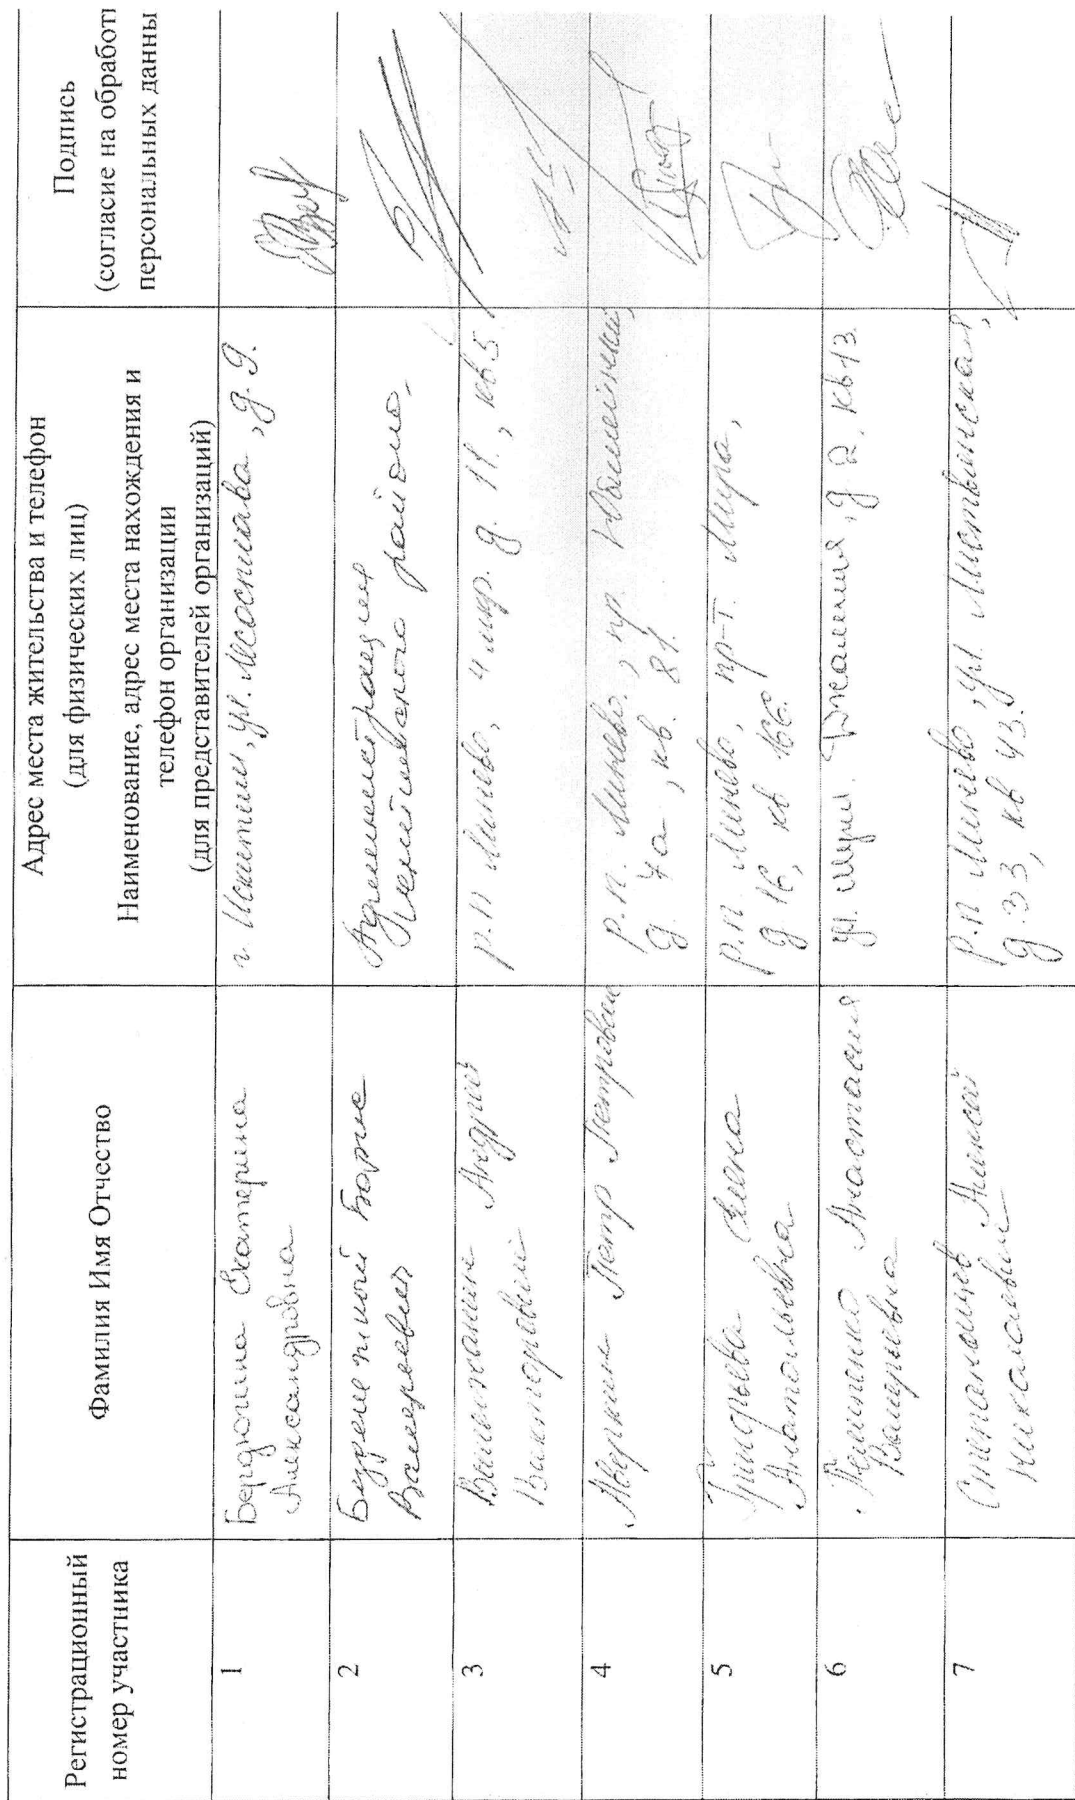 Регистрационный
номер участника
Фамилия Имя Отчество
Адрес места жительства и телефон
(для физических лиц)
Наименование, адрес места нахождения и
телефон организации
(для представителей организаций)
Подпись
(согласие на обработ
персональных данны
1
Бердюгина Екатерина
Александровна
г. Искитим, ул. д. 9.
2
Борис
Валерьевич
Администрация
Искитимского района.
3
Андрей
Викторович
р.п Линево, 4 мкр. д. 11, кв 5.
4
Аверкин Петр Петрович
р.п. Линево, пр. Юбилейный,
д. 4а, кв. 81.
5
Григорьева Елена
Анатольевна
р.п. Линево, пр-т. Мира,
д 16, кв 166
6
Анастасия
Валерьевна
ул. д 2, кв 13.
7
Алексей
Николаевич
р.п Линево, ул. Листвянская,
д. 33, кв 43.